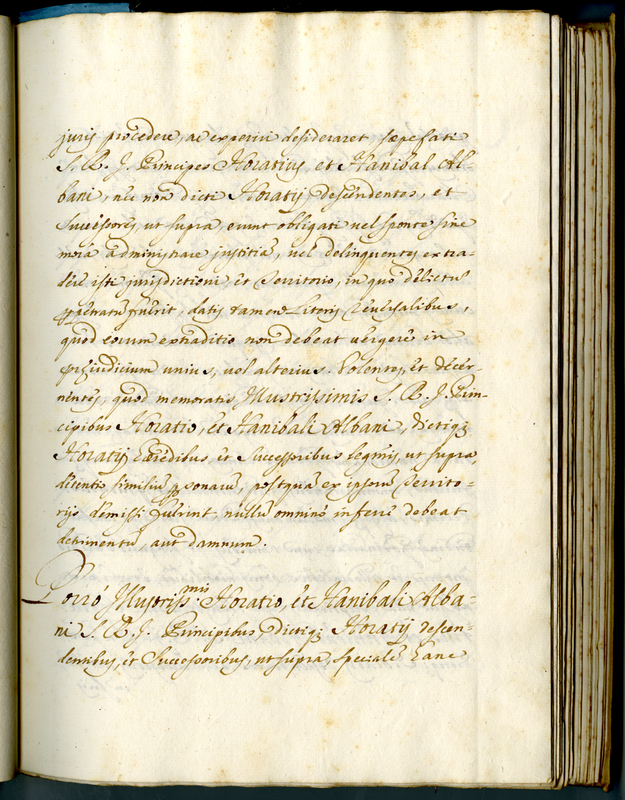 juris procedere, ac experiri desideraret sæpe fati
S. R. J. Principes Horatius, et Hanibal Al-
bani, nec non dicti Horatij descendentes, et
Successores, ut supra, erunt obligati vel sponte sine
morâ administrare justitiã, vel delinquentes extra-
dere isti jurisdictioni et Territorio, in quo delictũ
ꝑpetratũ fuerit, datis tamen Literis Reversalibus,
quod eorum extraditio non debeat vergere in
præjudicium unius, vel alterius. Volentes, et decer-
nentes, quod memoratis Illustrissimis S. R. J. Prin-
cipibus Horatio, et Hanibali Albani, dictisq;
Horatij Hæredibus et Successoribus legmis, ut supra,
detentio similiũ ꝑsonarũ, postquã ex ipsorũ Territo-
rijs demissi fuerint, nullũ omninò inferre debeat
detrimentũ, aut damnum.
Porrò Illustrissmis Horatio, et Hanibali Alba-
ni S. R. J. Principibus, dictisq; Horatij descen-
dentibus, et Successoribus, ut supra, specialẽ hanc